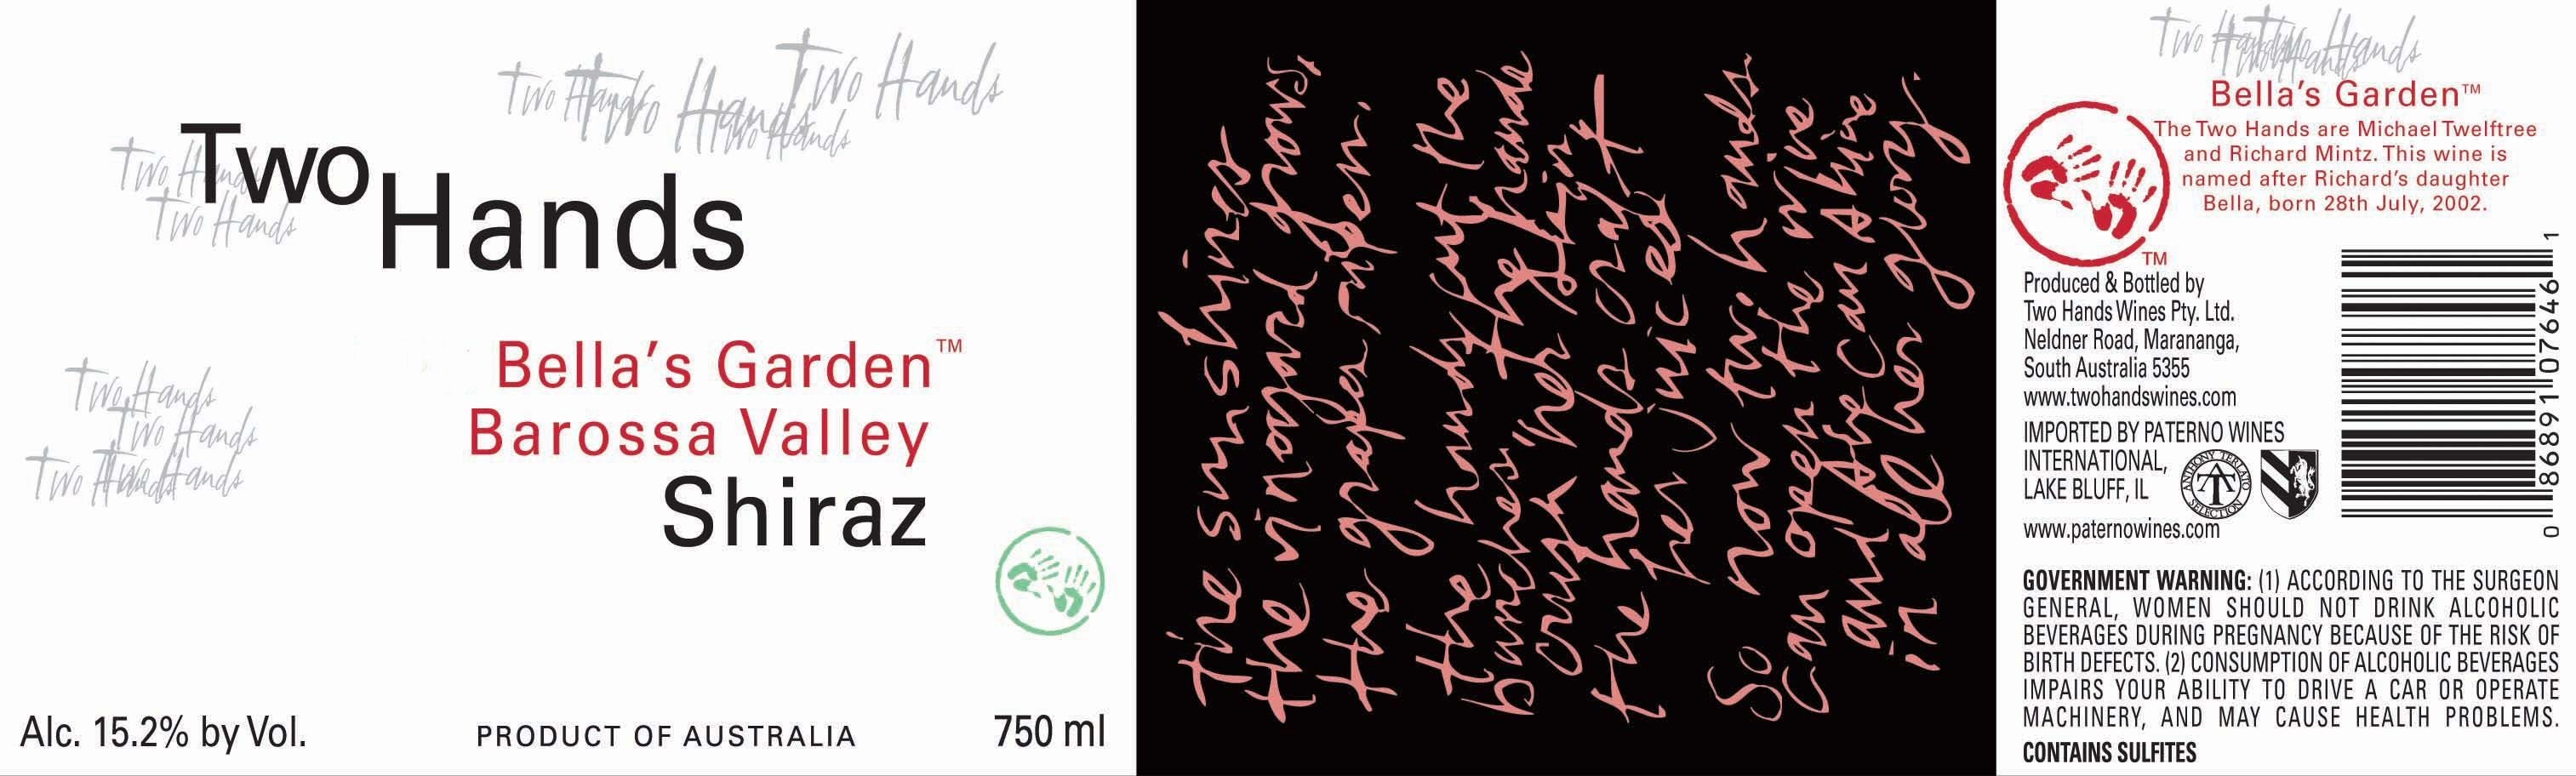 Two Hands
Two Hands
Two Hands
Two Hands
Two Hands
Two Hands
Two
Hands
Bella's Garden™
Barossa Valley
Shiraz
Two Hands
Two Hands
Two Hands
Two Hands
Alc. 15.2% by Vol.
PRODUCT OF AUSTRALIA
750 ml
The sun shines
the vineyard grows,
the grapes ripen.
the hands cut the
bunches, the hands
crush her skin
the hands craft
her juices
So now two hands
can open the wine
and she can shine
in all her glory.
Two Hands
Two Hands
Bella's Garden™
The Two Hands are Michael Twelftree
and Richard Mintz. This wine is
named after Richard's daughter
Bella, born 28th July, 2002.
TM
Produced & Bottled by
Two Hands Wines Pty. Ltd.
Neldner Road, Marananga,
South Australia 5355
www.twohandswines.com
IMPORTED BY PATERNO WINES
INTERNATIONAL,
LAKE BLUFF, IL
ANTHONY TERLATO
SELECTION
www.paternowines.com
0 86891 07646 1
GOVERNMENT WARNING: (1) ACCORDING TO THE SURGEON
GENERAL, WOMEN SHOULD NOT DRINK ALCOHOLIC
BEVERAGES DURING PREGNANCY BECAUSE OF THE RISK OF
BIRTH DEFECTS. (2) CONSUMPTION OF ALCOHOLIC BEVERAGES
IMPAIRS YOUR ABILITY TO DRIVE A CAR OR OPERATE
MACHINERY, AND MAY CAUSE HEALTH PROBLEMS.
CONTAINS SULFITES